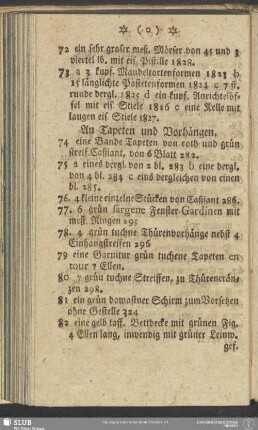 ( o )
72 ein sehr groser mess. Mörser von 45 und 3
viertel lb. mit eis. Pistille 1828.
73 a 3 kupf. Mandeltortenformen 1823 b
15 länglichte Pastetenformen 1824 c 7 st.
runde dergl. 1825 d ein kupf. Anrichtelöf-
fel mit eis Stiele 1826 c eine Kelle mit
laugen eis Stiele 1827.
An Tapeten und Vorhängen.
74 eine Bande Tapeten von roth und grün
streif. Cassiant, von 6 Blatt 282.
75 a eines dergl. von 2 bl. 283 b eine dergl.
von 4 bl. 284 c eins dergleichen von einen
bl. 285.
76. 4 kleine einzelne Stücken von Cassiant 286.
77. 6 grün sargene Fenster-Gardinen mit
mess. Ringen 295
78. 4 grün tuchne Thürenvorhänge nebst 4
Einhangstreifen 296
79 eine Garnitur grün tuchene Tapeten en
tour 7 Ellen.
80 7 grün tuchne Streiffen, zu Thürencrän-
zen 298.
81 ein grün dowastner Schirm zum Vorsetzen
ohne Gestelle 324
82 eine gelb taff. Bettdecke mit grünen Fig.
4 Ellen lang, inwendig mit grüner Leinw.
gef.
SLUB